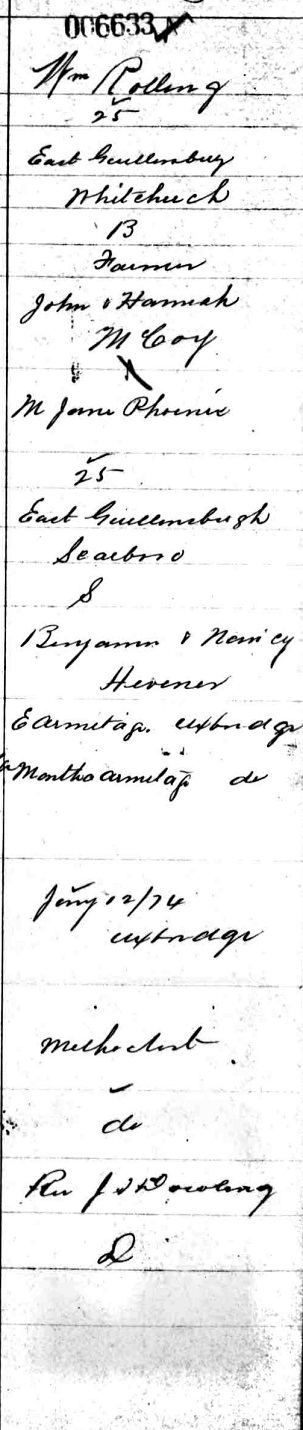 006633
Wm Rolling
25
East Guillimbury
Whitchurch
B
Farmer
John & Hannah
McCoy
M Jane Phoenix
25
East Guillimburgh
Scarboro
S
Benjamin & Nancy
Hevener
E Armitage. Uxbridge
Martha Armitage do
Jany 12/74
Uxbridge
Methodist
do
Rev J S Dowling